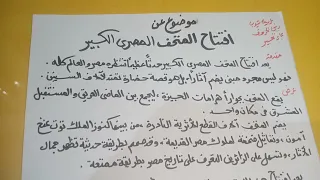 موضوع عن
افتتاح المتحف المصرى الكبير
مقدمة
يعد افتتاح المتحف المصرى الكبير حدثاً عظيماً تنتظره مصر والعالم كله.
فهو ليس مجرد مبنى يضم آثاراً بل هو قصة حضارة تمتد لآلاف السنين.
عرض
يقع المتحف بجوار أهرامات الجيزة، ليجمع بين الماضى العريق والمستقبل
المشرق فى مكان واحد.
يضم المتحف آلاف القطع الأثرية النادرة، من بينها كنوز الملك توت عنخ
آمون، وتماثيل ضخمة لملوك مصر القديمة، وقد صمم بطريقة حديثة تظهر جمال
الآثار، وتسهل على الزائرين التعرف على تاريخ مصر بطريقة ممتعة.